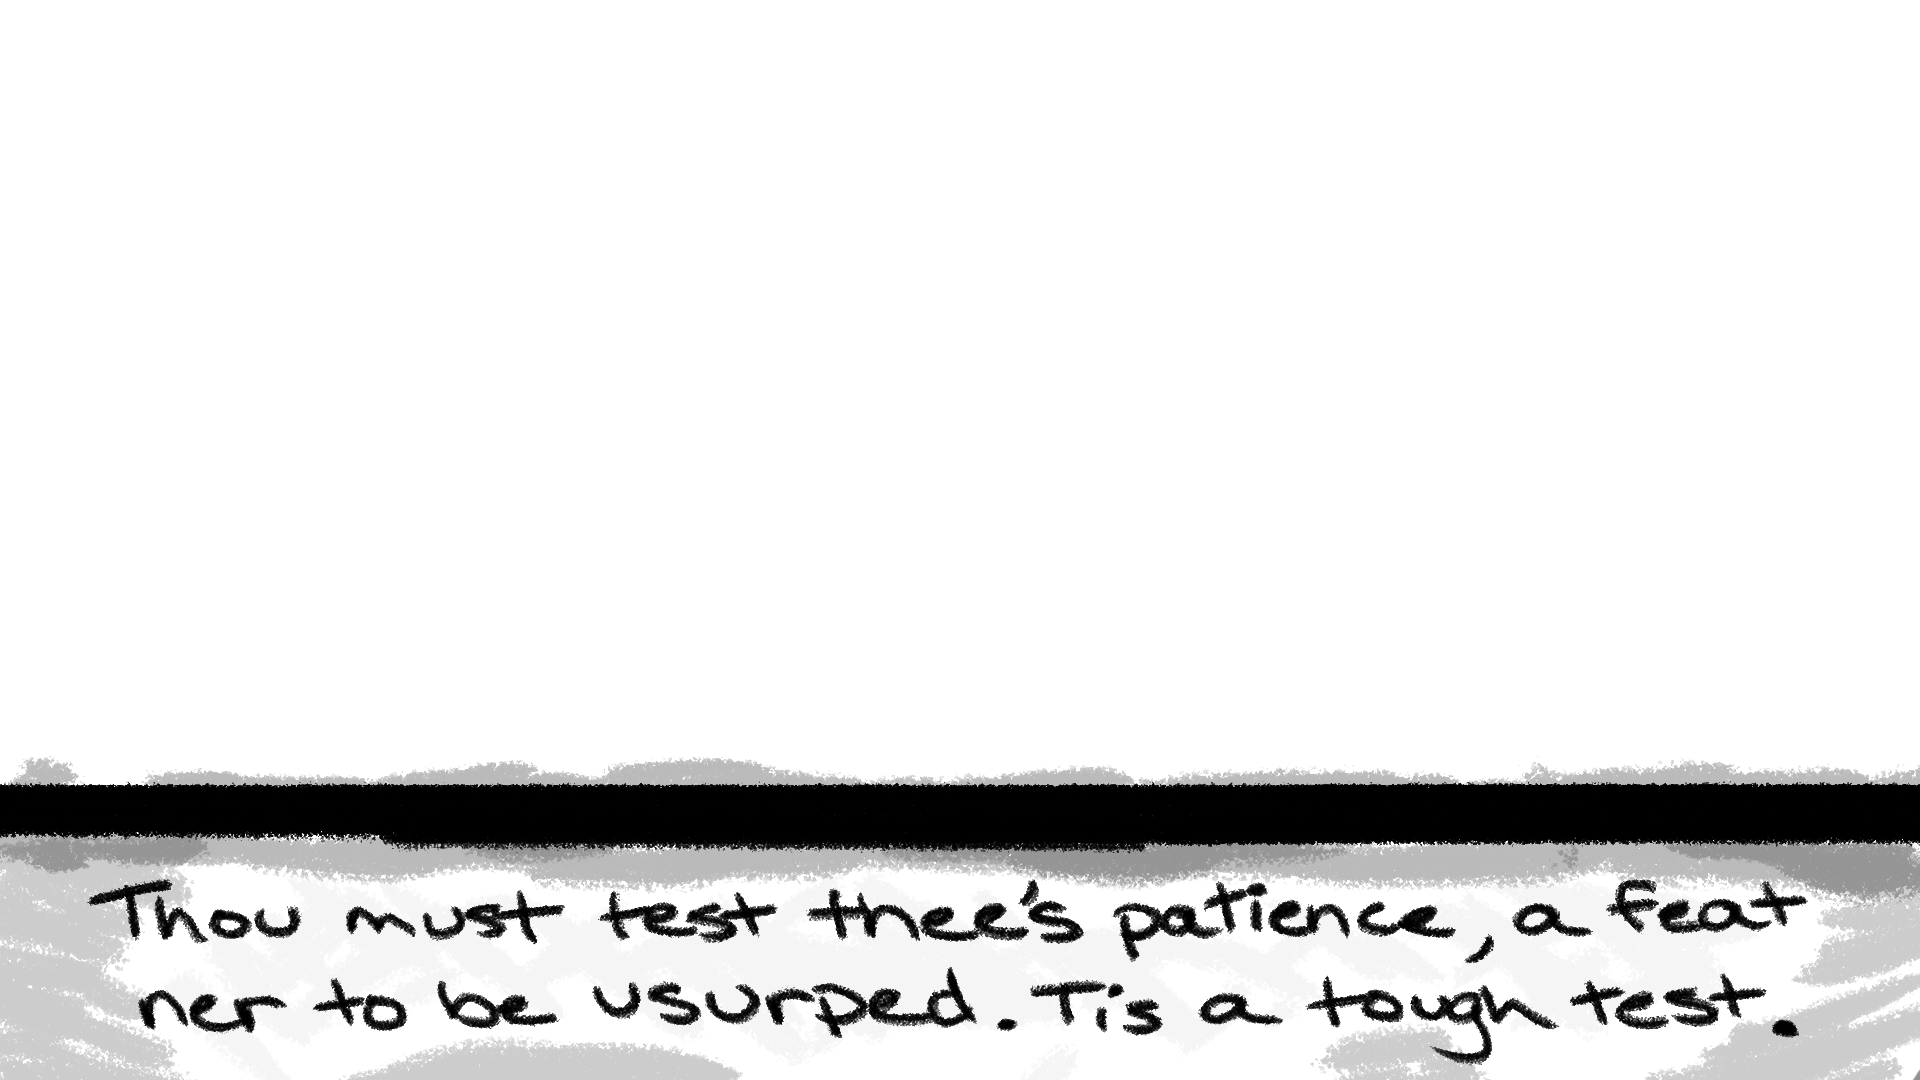 Thou must test thee's patience, a feat
ner to be usurped. Tis a tough test.